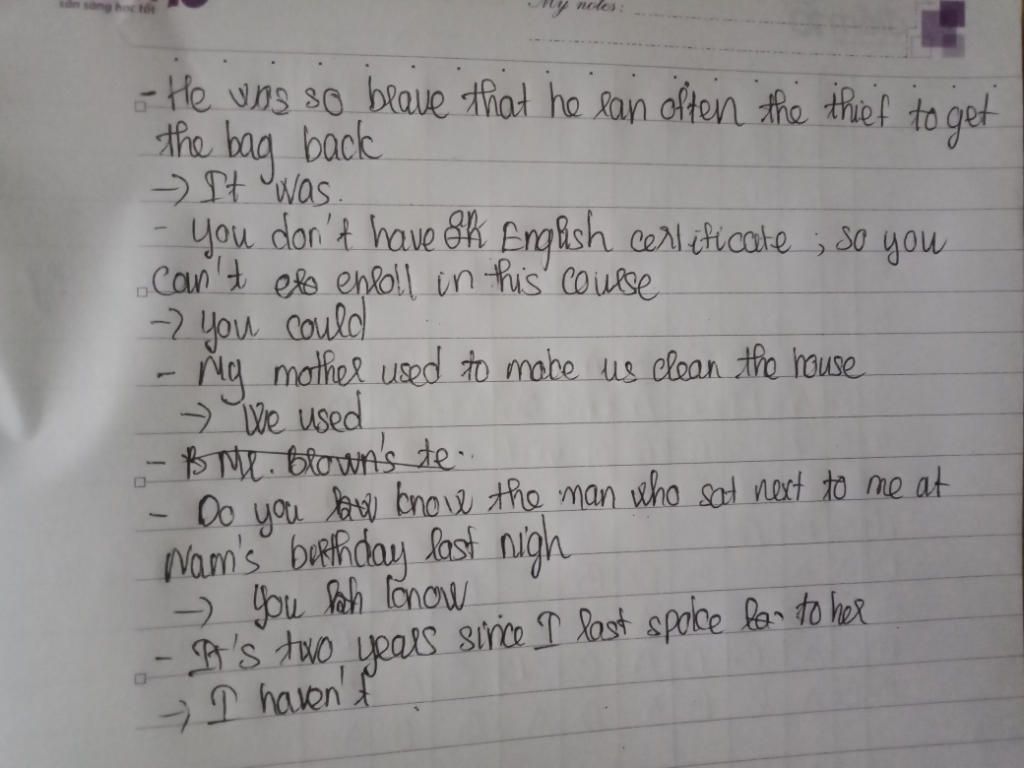 sẵn sàng học tốt
My notes:
- He was so brave that he ran often the thief to get
the bag back
-> It was.
- You don't have an English certificate ; so you
can't enroll in this course
-> you could
- My mother used to make us clean the house
-> We used
- Mr. Brown's te..
- Do you know the man who sat next to me at
Nam's berthday last nigh
-> you know
- It's two years since I last spoke to her
-> I haven't